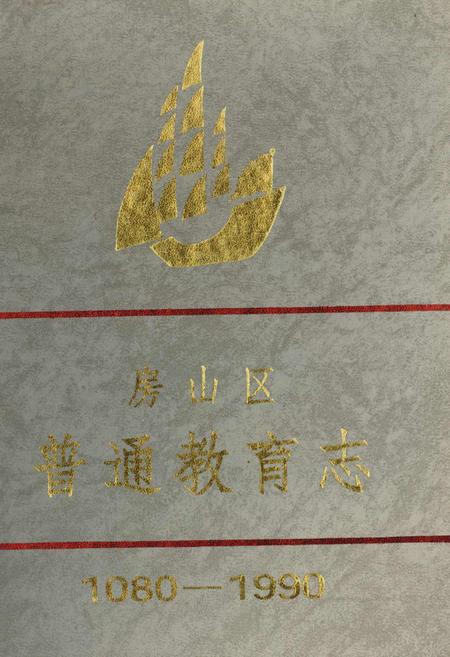 房山区
普通教育志
1080—1990